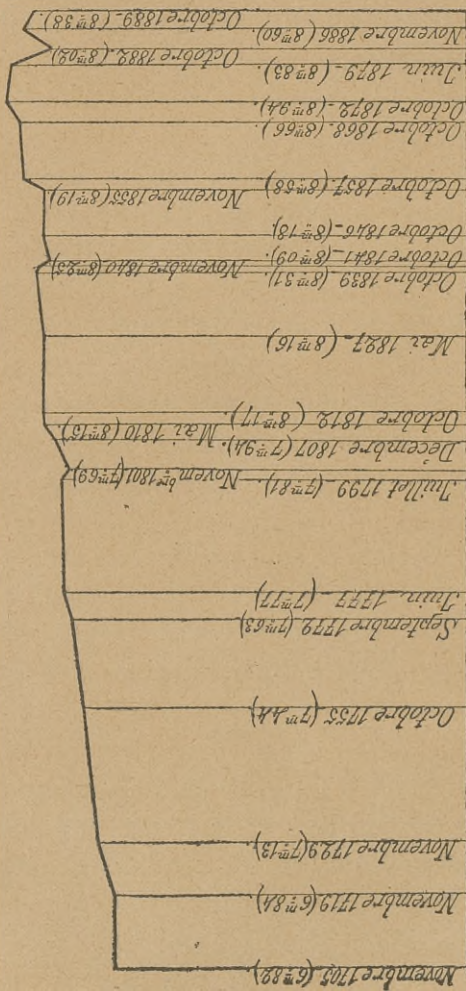 Novembre 1705 (6ᵐ82).
Novembre 1719 (6ᵐ84).
Novembre 1729 (7ᵐ13).
Octobre 1755 (7ᵐ44).
Septembre 1772 (7ᵐ63)
Juin 1777 - (7ᵐ77)
Juillet 1799 - (7ᵐ81). Novembre 1801 (7ᵐ69)
Décembre 1807 (7ᵐ94).
Mai 1810 (8ᵐ15)
Octobre 1812 (8ᵐ17).
Mai 1827 - (8ᵐ16)
Octobre 1839 (8ᵐ31).
Novembre 1840 (8ᵐ25)
Octobre 1841 - (8ᵐ09).
Octobre 1846 - (8ᵐ18)
Novembre 1855 (8ᵐ19)
Octobre 1857 - (8ᵐ58)
Octobre 1868 (8ᵐ66).
Octobre 1872 - (8ᵐ94).
Juin 1879 - (8ᵐ83).
Octobre 1882 - (8ᵐ02)
Novembre 1886 (8ᵐ60)
Octobre 1889 - (8ᵐ38)